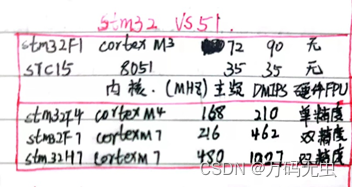 Stm32 VS 51.
stm32F1 cortex M3 72 90 无
STC15 8051 35 35 无
内核. (MHz) 主频 DMIPS 硬件FPU
stm32F4 cortex M4 168 210 单精度
stm32F7 cortex M7 216 462 双精度
stm32H7 cortex M7 480 1027 双精度
CSDN @万码无虫